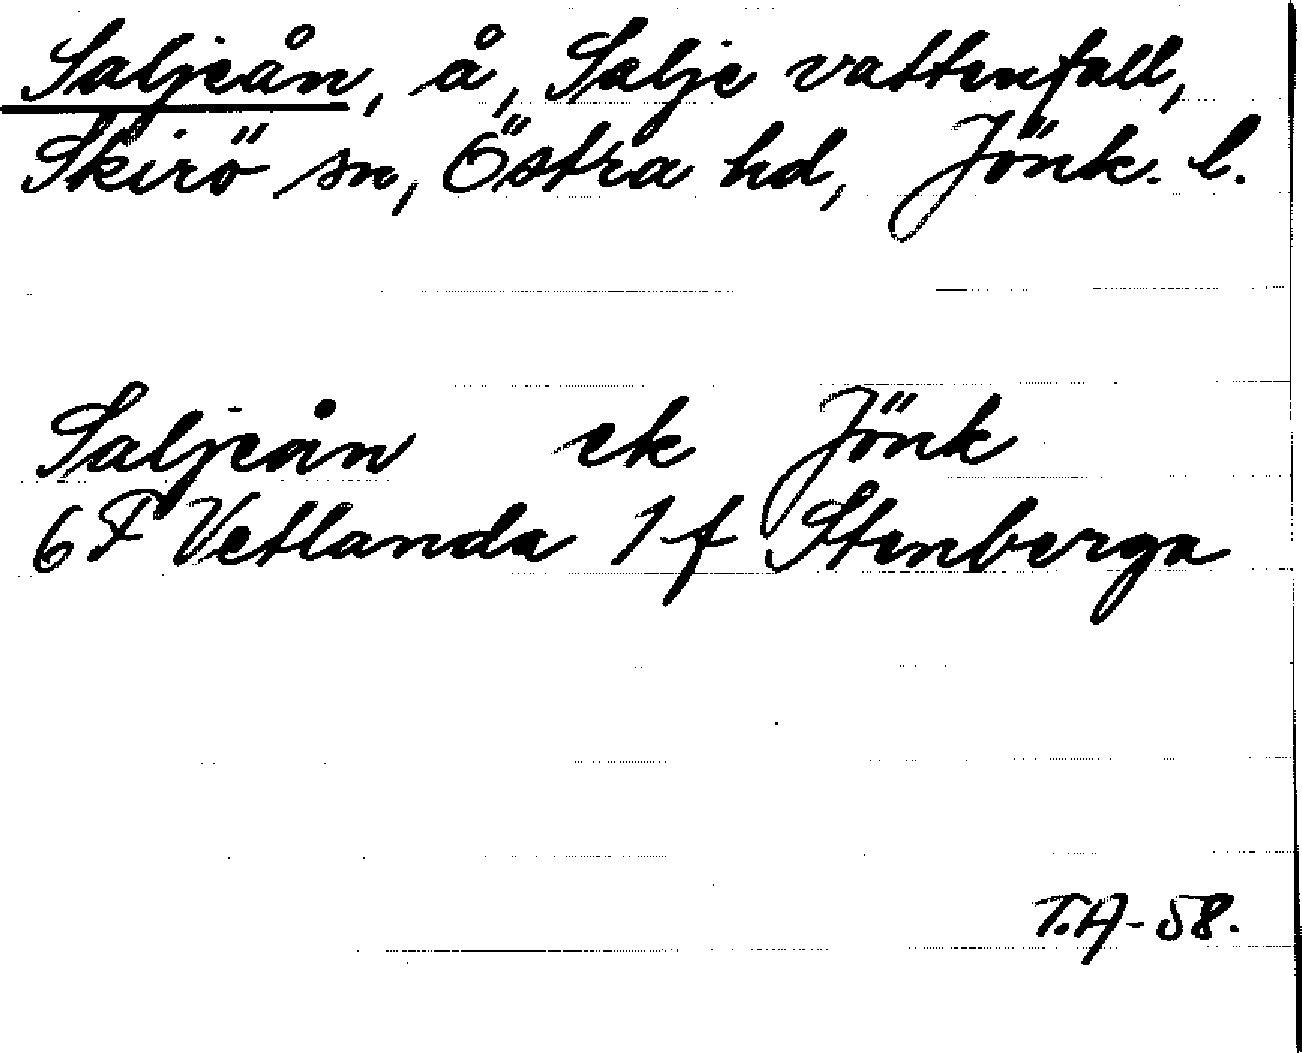 Saljeån, å, Salje vattenfall,
Skirö sn, Östra hd, Jönk. l.
Saljeån ek Jönk
6 F Vetlanda 1 f Stenberga
T.A-58.